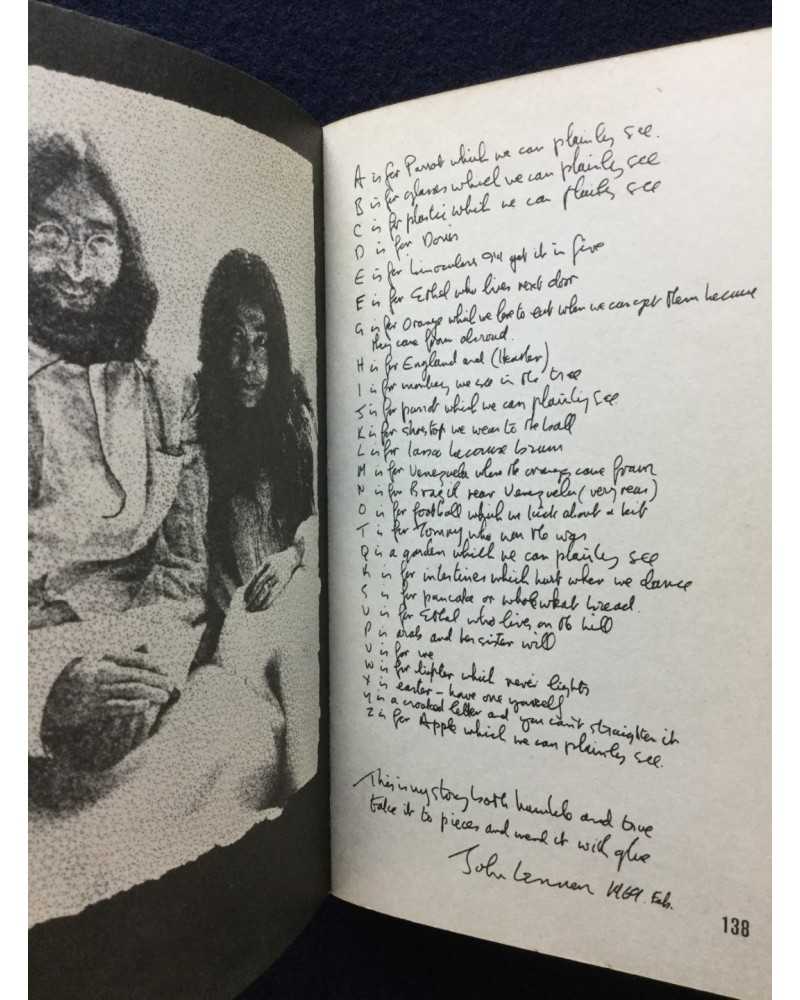 A is for Parrot which we can plainly see.
B is for glasses which we can plainly see
C is for plastic which we can plainly see
D is for Doris
E is for binoculars I'll get it in five
E is for Ethel who lives next door
G is for Orange which we love to eat when we can get them because
they come from abroad.
H is for England and (Heather)
I is for monkey we see in the tree
J is for parrot which we can plainly see
K is for shoetop we wear to the ball
L is for because brown
M is for Venezuela where the oranges come from
N is for Brazil near Venezuela (very near)
O is for football which we kick about a bit
T is for Tommy who won the war
Q is a garden which we can plainly see
R is for intestines which hurt when we dance
S is for pancake or wholewheat bread.
U is for Ethel who lives on the hill
P is arab and her sister will
V is for me
W is for lighter which never lights
X is easter - have one yourself
Y is a crooked letter and you can't straighten it
Z is for Apple which we can plainly see.
This is my story both humble and true
take it to pieces and mend it with glue
John Lennon 1969. Feb.
138